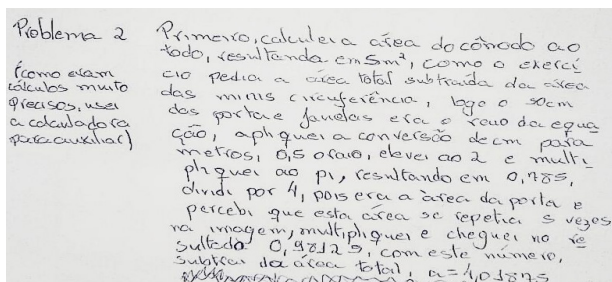 Problema 2
(como eram
cálculos muito
precisos, usei
a calculadora
para auxiliar)
Primeiro, calculei a área do cômodo ao
todo, resultando em 5m², como o exercí
cio pedia a área total subtraída da área
das minis circuferência, logo o 50cm
das portas e janelas era o raio da equa
ção, apliquei a conversão de cm para
metros, 0,5 o raio, elevei ao 2 e multi
pliquei ao pi, resultando em 0,785,
dividi por 4, pois era a área da porta e
percebi que esta área se repetia 5 vezes
na imagem, multipliquei e cheguei no re
sultado 0,98125, com este número,
subtrai da área total, a=4,01875